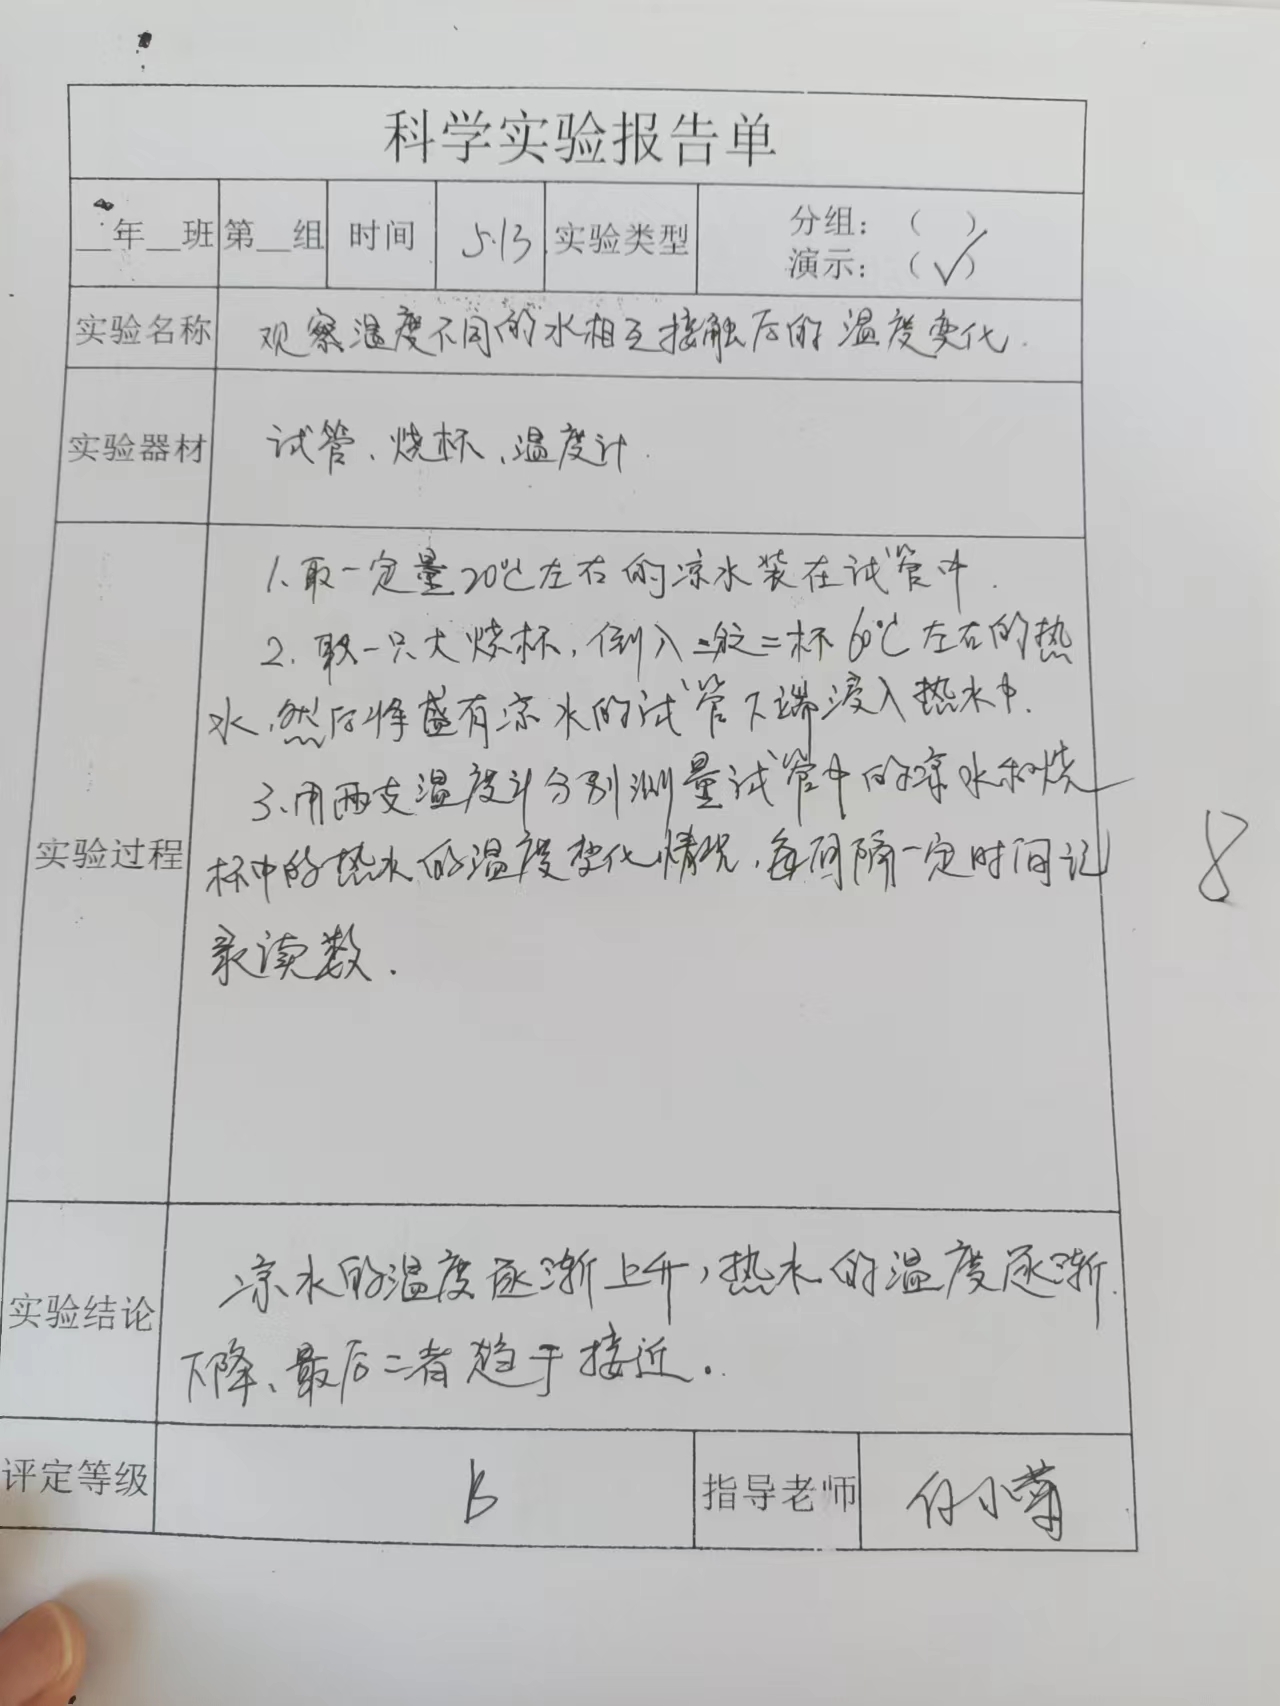 科学实验报告单
__年__班 第__组 时间 5.13 实验类型 分组：（ ）
演示：（√）
实验名称 观察温度不同的水相互接触后的温度变化.
实验器材 试管、烧杯、温度计.
实验过程
1、取一定量20℃左右的凉水装在试管中.
2、取一只大烧杯，倒入 杯60℃左右的热
水，然后将盛有凉水的试管下端浸入热水中.
3、用两支温度计分别测量试管中的凉水和烧
杯中的热水的温度变化情况，每间隔一定时间记
录读数.
8
实验结论
凉水的温度逐渐上升，热水的温度逐渐
下降、最后二者趋于接近。
评定等级 B 指导老师